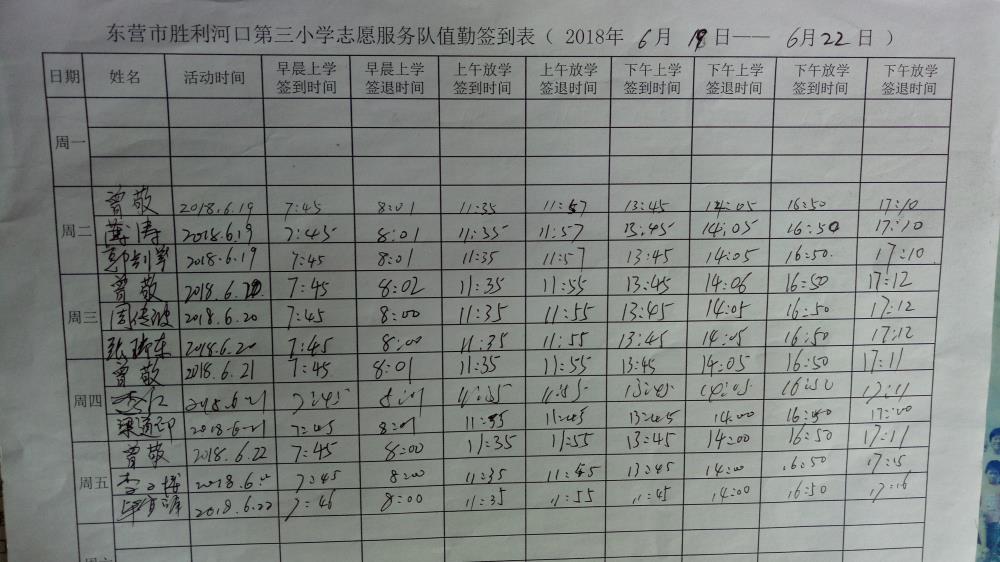 东营市胜利河口第三小学志愿服务队值勤签到表（ 2018年 6月 19日—— 6月22日 ）
日期 姓名 活动时间 早晨上学签到时间 早晨上学签退时间 上午放学签到时间 上午放学签退时间 下午上学签到时间 下午上学签退时间 下午放学签到时间 下午放学签退时间
周一
周二 曾敬 2018.6.19 7:45 8:01 11:35 11:57 13:45 14:05 16:50 17:10
涛 2018.6.19 7:45 8:01 11:35 11:57 13:45 14:05 16:50 17:10
2018.6.19 7:45 8:01 11:35 11:57 13:45 14:05 16:50 17:10
周三 曾敬 2018.6.20 7:45 8:02 11:35 11:55 13:45 14:06 16:50 17:12
周传波 2018.6.20 7:45 8:00 11:35 11:55 13:45 14:05 16:50 17:12
张 东 2018.6.20 7:45 8:00 11:35 11:55 13:45 14:05 16:50 17:12
周四 曾敬 2018.6.21 7:45 8:01 11:35 11:55 13:45 14:05 16:50 17:11
李 2018.6.21 7:45 8:01 11:35 11:55 13:45 14:05 16:50 17:11
梁 2018.6.21 7:45 8:01 11:35 11:45 13:45 14:00 16:50 17:00
周五 曾敬 2018.6.22 7:45 8:00 11:35 11:55 13:45 14:00 16:50 17:11
李 博 2018.6. 7:45 8:00 11:35 11:45 13:45 14:00 16:50 17:15
2018.6.22 7:46 8:00 11:35 11:55 11:45 14:00 16:50 17:16